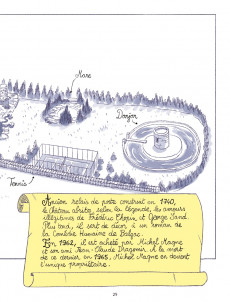 Mare
Donjon
Tennis
Ancien relais de poste construit en 1740,
le château abrita, selon la légende, les amours
illégitimes de Frédéric Chopin et George Sand.
Plus tard, il sert de décor à un roman de
la Comédie Humaine de Balzac.
En 1962, il est acheté par Michel Magne
et son ami Jean-Claude Dragomir. À la mort
de ce dernier en 1965, Michel Magne en devient
l'unique propriétaire.